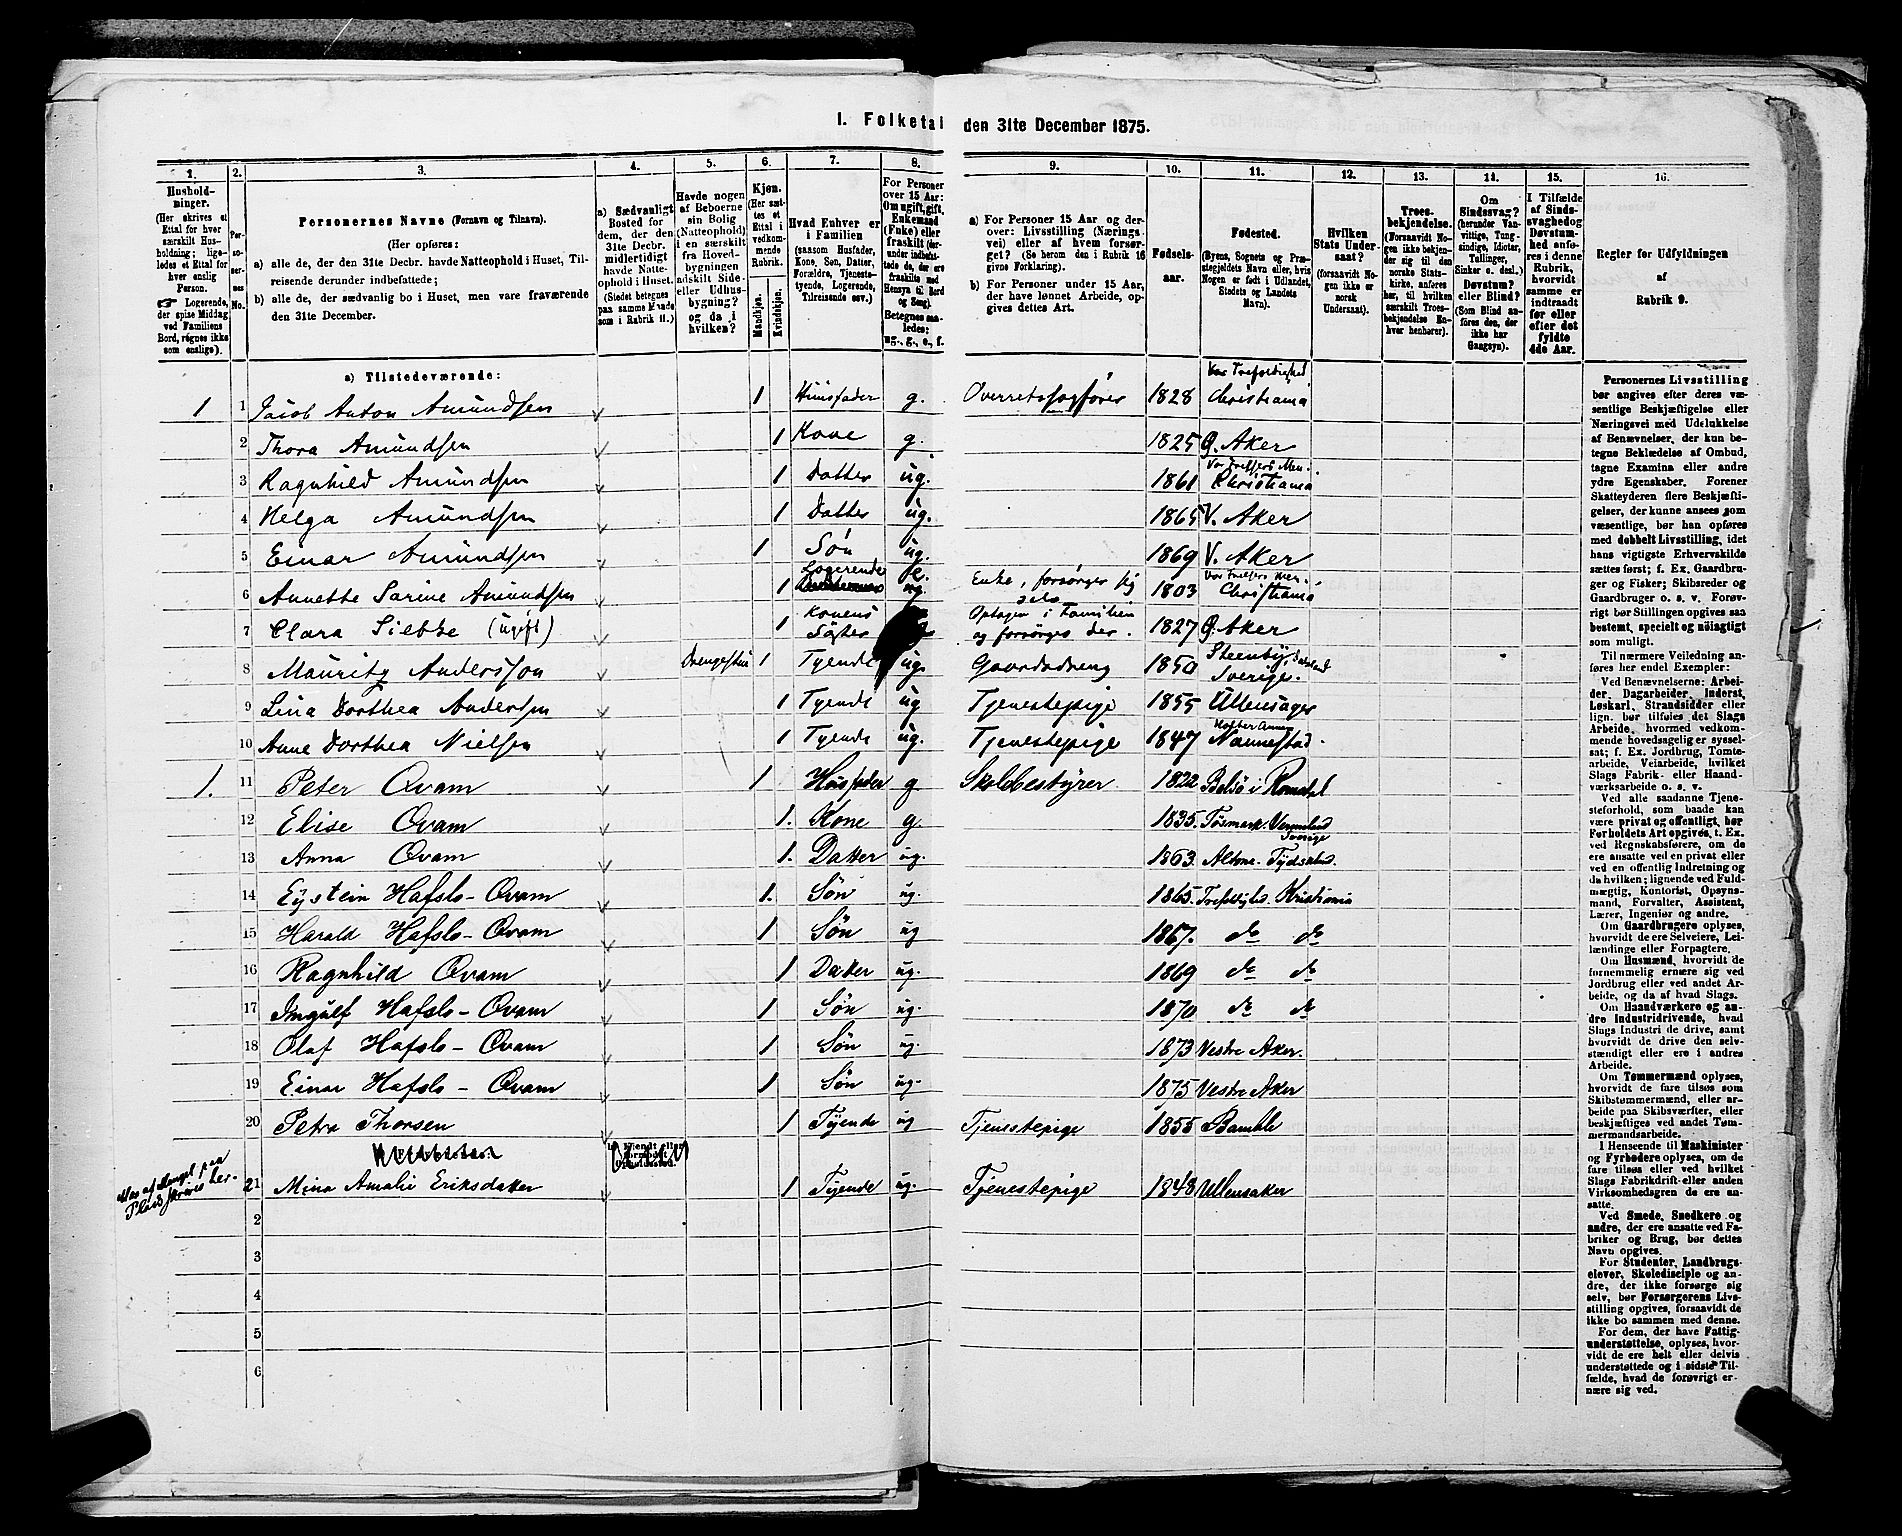 I. Folketal den 31te December 1875.
1. 2. 3. 4. 5. 6. 7. 8. 9. 10. 11. 12. 13. 14. 15. 16.
Husholdninger. (Her skrives et Ettal for hver særskilt Husholdning; ligeledes et Ettal for hver enslig Person. ☞ Logerende, der spise Middag ved Familiens Bord, regnes ikke som enslige).
Personernes No.
Personernes Navne (Fornavn og Tilnavn).
(Her opføres:
a) alle de, der den 31te Decbr. havde Natteophold i Huset, Tilreisende derunder indbefattede;
b) alle de, der sædvanlig bo i Huset, men vare fraværende den 31te December.
a) Sædvanligt Bosted for dem, der den 31te Decbr. midlertidigt havde Natteophold i Huset. (Stedet betegnes paa samme Maade som i Rubrik 11.)
Havde nogen af Beboerne sin Bolig (Natteophold) i en særskilt fra Hovedbygningen adskilt Side- eller Udhusbygning? og da i hvilken?
Kjøn. (Her sættes et Ettal i vedkommende Rubrik. Mandkjøn. Kvindekjøn.
Hvad Enhver er i Familien (saasom Husfader, Kone, Søn, Datter, Forældre, Tjenestetyende, Logerende, Tilreisende osv.)
For Personer over 15 Aar: Om ugift, gift, Enkemand (Enke) eller fraskilt (derunder indbefattede de, der ere fraskilte med Hensyn til Bord og Seng). Betegnes saaledes: ug., g., e., f.
a) For Personer 15 Aar og derover: Livsstilling (Næringsvei) eller af hvem forsørget? (Se herom den i Rubrik 16 givne Forklaring).
b) For Personer under 15 Aar, der have lønnet Arbeide, opgives dettes Art.
Fødselsaar.
Fødested. (Byens, Sognets og Præstegjeldets Navn eller, hvis Nogen er født i Udlandet, Stedets og Landets Navn).
Hvilken Stats Undersaat? (forsaavidt Nogen ikke er norsk Undersaat).
Troesbekjendelse. (Forsaavidt Nogen ikke bekjender sig til den norske Statskirke, anføres her, til hvilken særskilt Troesbekjendelse Enhver henhører).
Om Sindssvag? (herunder Vanvittige, Tungsindige, Idioter, Tullinger, Sinker o. desl.) Døvstum? eller Blind? (Som Blind anføres den, der ikke har Gangsyn).
I Tilfælde af Sindssvaghed og Døvstumhed anføres i denne Rubrik, hvorvidt samme er indtraadt før eller efter det fyldte 4de Aar.
Regler for Udfyldningen af Rubrik 9.
a) Tilstedeværende:
1 1 Jacob Anton Amundsen 1 Huusfader g. Overretssagfører 1828 Vor Trefoldighed Christiania
2 Thora Amundsen 1 Kone g. 1825 Ø. Aker
3 Ragnhild Amundsen 1 Datter ug. 1861 Vor Frelsers Men. Christiania
4 Helga Amundsen 1 Datter ug. 1865 V. Aker
5 Einar Amundsen 1 Søn ug. 1869 V. Aker
6 Annette Sarine Amundsen 1 Logerende e. Enke, forsørger sig selv 1803 Vor Frelsers Men. Christiania
7 Clara Siebke (ugift) 1 Konens Søster Optagen i Familien og forsørges der. 1827 Ø. Aker
8 Mauritz Andersson Drengestue 1 Tyende ug. Gaardsdreng 1850 Steenby, Dalsland Sverige.
9 Lina Dorthea Andersen 1 Tyende ug Tjenestepige 1855 Ullensager
10 Anne Dorthea Nielsen 1 Tyende ug. Tjenestepige 1847 Nannestad
1. 11 Peter Qvam 1 Husfader g Skolebestyrer 1822 Bolsø i Romsdal
12 Elise Qvam 1. Kone g. 1835. Tøsmark. Vermland Sverige
13 Anna Qvam 1. Datter ug. 1863. Altona. Tydskland.
14 Eystein Hafslo-Qvam 1. Søn ug. 1865. Trefoldighed. Kristiania
15 Harald Hafslo-Qvam 1 Søn ug 1867. do do
16 Ragnhild Qvam 1 Datter ug. 1869 do do
17 Ingulf Hafslo-Qvam 1 Søn ug. 1870 do do
18 Olaf Hafslo-Qvam 1 Søn ug. 1873 Vestre Aker.
19 Einar Hafslo-Qvam 1 Søn ug. 1875 Vestre Aker
20 Petra Thorsen 1 Tyende ug Tjenestepige 1855 Bamble
Mas af Mangel paa Plads skrives her.
21 Mina Amalie Eriksdatter 1 Tyende ug. Tjenestepige 1848 Ullensaker
2
3
4
5
6
Personernes Livsstilling bør angives efter deres væsentlige Beskjæftigelse eller Næringsvei med Udelukkelse af Benævnelser, der kun betegne Beklædelse af Ombud, tagne Examina eller andre ydre Egenskaber. Forener Skatteyderen flere Beskjæftigelser, der kunne ansees som væsentlige, bør han opføres med dobbelt Livsstilling, idet hans vigtigste Erhvervskilde sættes først; f. Ex. Gaardbruger og Fisker; Skibsreder og Gaardbruger o. s. v. Forøvrigt bør Stillingen opgives saa bestemt, specielt og nøiagtigt som muligt.
Til nærmere Veiledning anføres her endel Exempler:
Ved Benævnelserne: Arbeider, Dagarbeider, Inderst, Løskarl, Strandsidder eller lign. bør tilføies det Slags Arbeide, hvormed vedkommende hovedsagelig er sysselsat; f. Ex. Jordbrug, Tomtearbeide, Veiarbeide, hvilket Slags Fabrik- eller Haandværksarbeide o. s. v.
Ved alle saadanne Tjenesteforhold, som baade kan være privat og offentligt, bør Forholdets Art opgives, t. Ex. ved Regnskabsførere, om de ere ansatte ved en privat eller ved en offentlig Indretning og da hvilken; lignende ved Fuldmægtig, Kontorist, Opsynsmand, Forvalter, Assistent, Lærer, Ingeniør og andre.
Om Gaardbrugere oplyses, hvorvidt de ere Selveiere, Leilændinge eller Forpagtere.
Om Husmænd, hvorvidt de fornemmelig ernære sig ved Jordbrug eller ved andet Arbeide, og da af hvad Slags.
Om Haandværkere og andre Industridrivende, hvad Slags Industri de drive, samt hvorvidt de drive den selvstændigt eller ere i andres Arbeide.
Om Tømmermænd oplyses, hvorvidt de fare tilsøs som Skibstømmermænd, eller arbeide paa Skibsværfter, eller beskjæftiges ved andet Tømmermandsarbeide.
I Henseende til Maskinister og Fyrbødere oplyses, om de fare tilsøs eller ved hvilket Slags Fabrikdrift eller anden Virksomhedsgren de ere ansatte.
Ved Smede, Snedkere og andre, der ere ansatte ved Fabriker og Brug, bør dettes Navn opgives.
For Studenter, Landbrugselever, Skoledisciple og andre, der ikke forsørge sig selv, bør Forsørgerens Livsstilling opgives, forsaavidt de ikke bo sammen med denne.
For dem, der have Fattigunderstøttelse, oplyses, hvorvidt de ere helt eller delvis understøttede og i sidste Tilfælde, hvad de forøvrigt ernære sig ved.